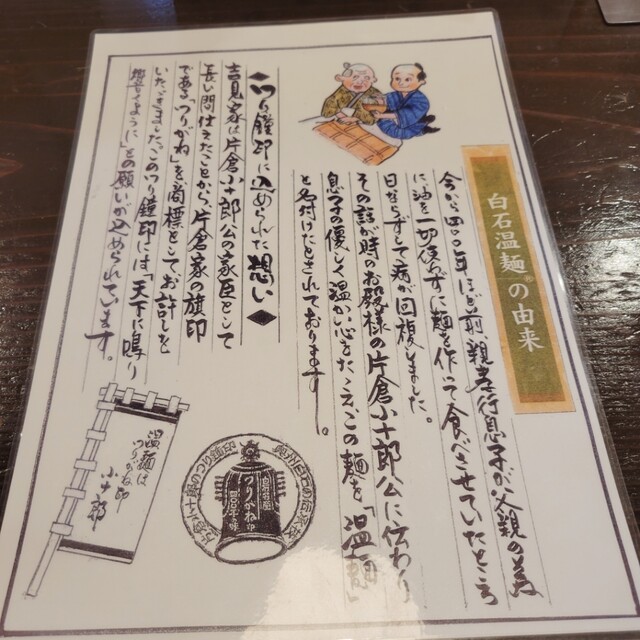 白石温麺の由来
今から四〇〇年ほど前、親孝行息子が父親の為
に、油を一切使わずに麺を作って食べさせていたところ
日ならずして病が回複しました。
その話が時のお殿様の片倉小十郎公に伝わり
息子の優しく温かい心をたたえ、この麺を「温麺」
と名付けたとされております。
◆つり鐘印に込められた想い◆
吉見家は片倉小十郎公の家臣として
長い間仕えたことから、片倉家の旗印
である「つりがね」を商標としてお許しを
いただきました。このつり鐘印には「天下に鳴り
響くように」との願いが込められています。
温麺は
つりがね印
小十郎
つりがね